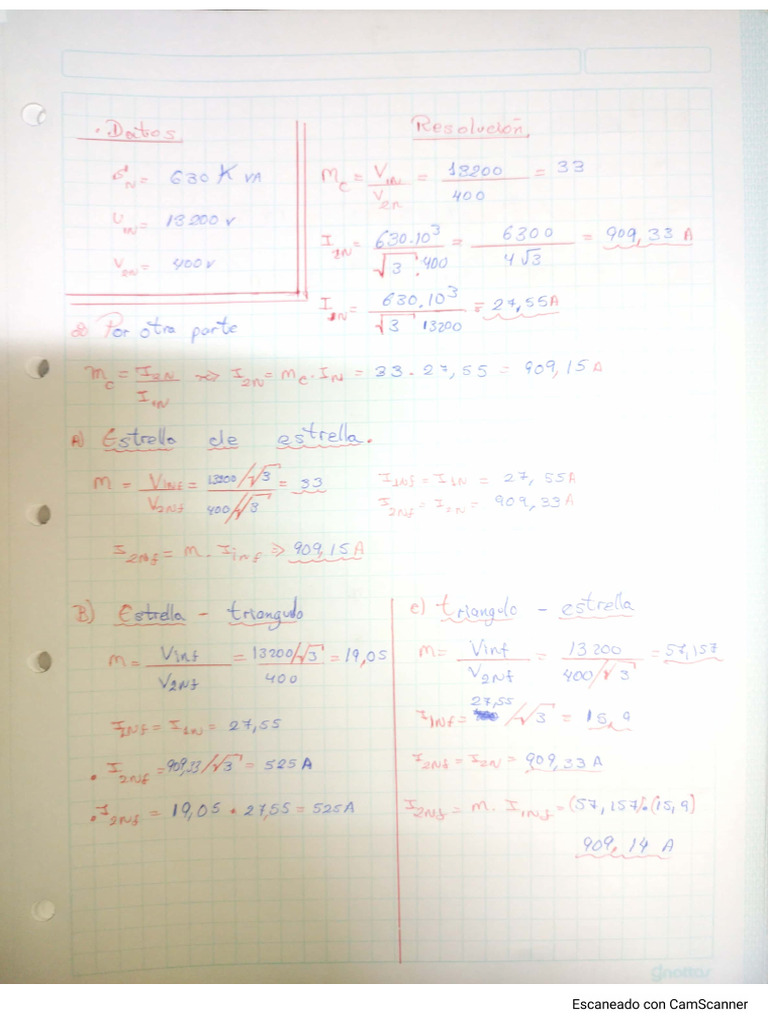 • Datos
S_N = 630 KVA
U_1N = 13200 v
V_2N = 400 v
Resolución
m_c = V_1N / V_2N = 13200 / 400 = 33
I_2N = 630.10³ / √3 . 400 = 6300 / 4√3 = 909,33 A
I_1N = 630.10³ / √3 13200 = 27,55 A
Por otra parte
m_c = I_2N / I_1N => I_2N = m_c . I_N = 33 . 27,55 = 909,15 A
A) Estrella de estrella.
m = V_1Nf / V_2Nf = 13200/√3 / 400/√3 = 33
I_1Nf = I_1N = 27,55A
I_2Nf = I_2N = 909,33A
I_2Nf = m . I_1nf => 909,15 A
B) Estrella - triangulo
m = V_1nf / V_2Nf = 13200/√3 / 400 = 19,05
I_1Nf = I_1N = 27,55
• I_2Nf = 909,33/√3 = 525 A
• I_2Nf = 19,05 • 27,55 = 525A
c) triangulo - estrella
m = V_1nf / V_2Nf = 13200 / 400/√3 = 57,157
I_1Nf = 27,55/√3 = 15,9
I_2Nf = I_2N = 909,33 A
I_2Nf = m . I_1Nf = (57,157).(15,9)
909,14 A
gnottas
Escaneado con CamScanner